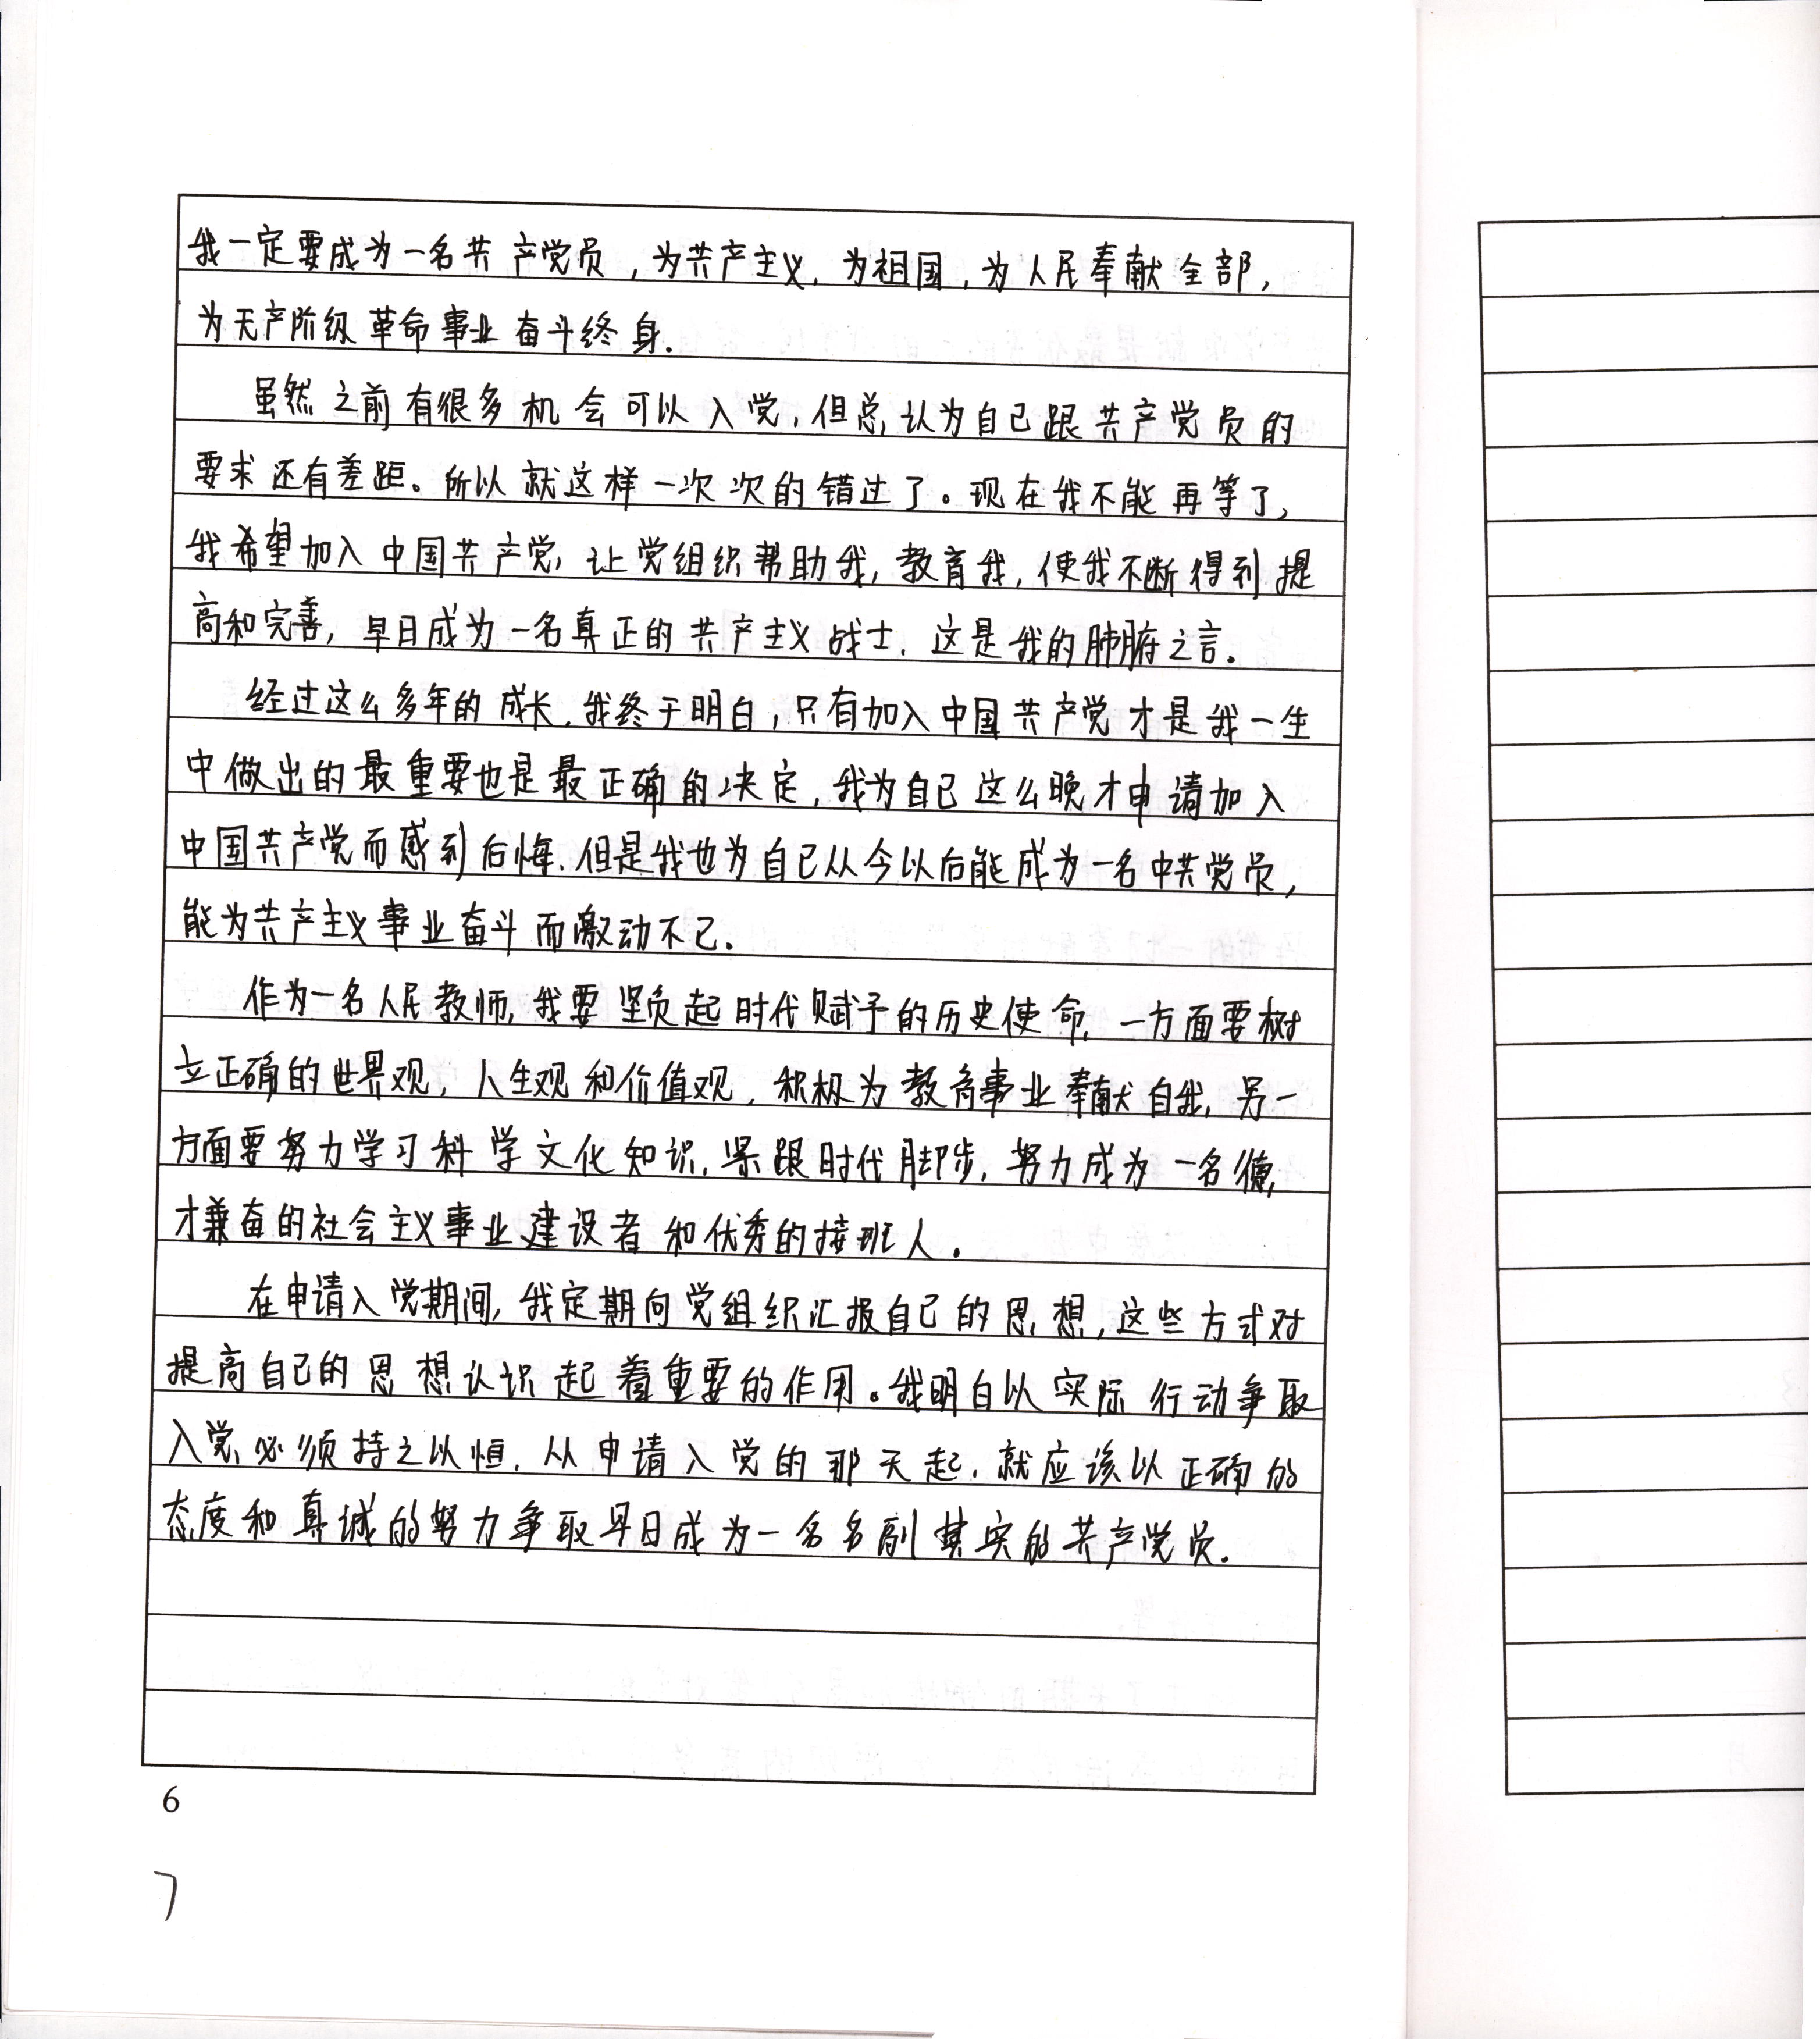 我一定要成为一名共产党员，为共产主义，为祖国，为人民奉献全部，
为无产阶级革命事业奋斗终身.
虽然之前有很多机会可以入党，但总认为自己跟共产党员的
要求还有差距。所以就这样一次次的错过了。现在我不能再等了，
我希望加入中国共产党，让党组织帮助我，教育我，使我不断得到提
高和完善，早日成为一名真正的共产主义战士，这是我的肺腑之言。
经过这么多年的成长，我终于明白，只有加入中国共产党才是我一生
中做出的最重要也是最正确的决定，我为自己这么晚才申请加入
中国共产党而感到后悔.但是我也为自己从今以后能成为一名中共党员，
能为共产主义事业奋斗而激动不已.
作为一名人民教师，我要坚负起时代赋予的历史使命，一方面要树
立正确的世界观，人生观和价值观，积极为教育事业奉献自我，另一
方面要努力学习科学文化知识，紧跟时代脚步，努力成为一名德
才兼备的社会主义事业建设者和优秀的接班人。
在申请入党期间，我定期向党组织汇报自己的思想，这些方式对
提高自己的思想认识起着重要的作用。我明白以实际行动争取
入党必须持之以恒，从申请入党的那天起，就应该以正确的
态度和真诚的努力争取早日成为一名名副其实的共产党员.
6
7